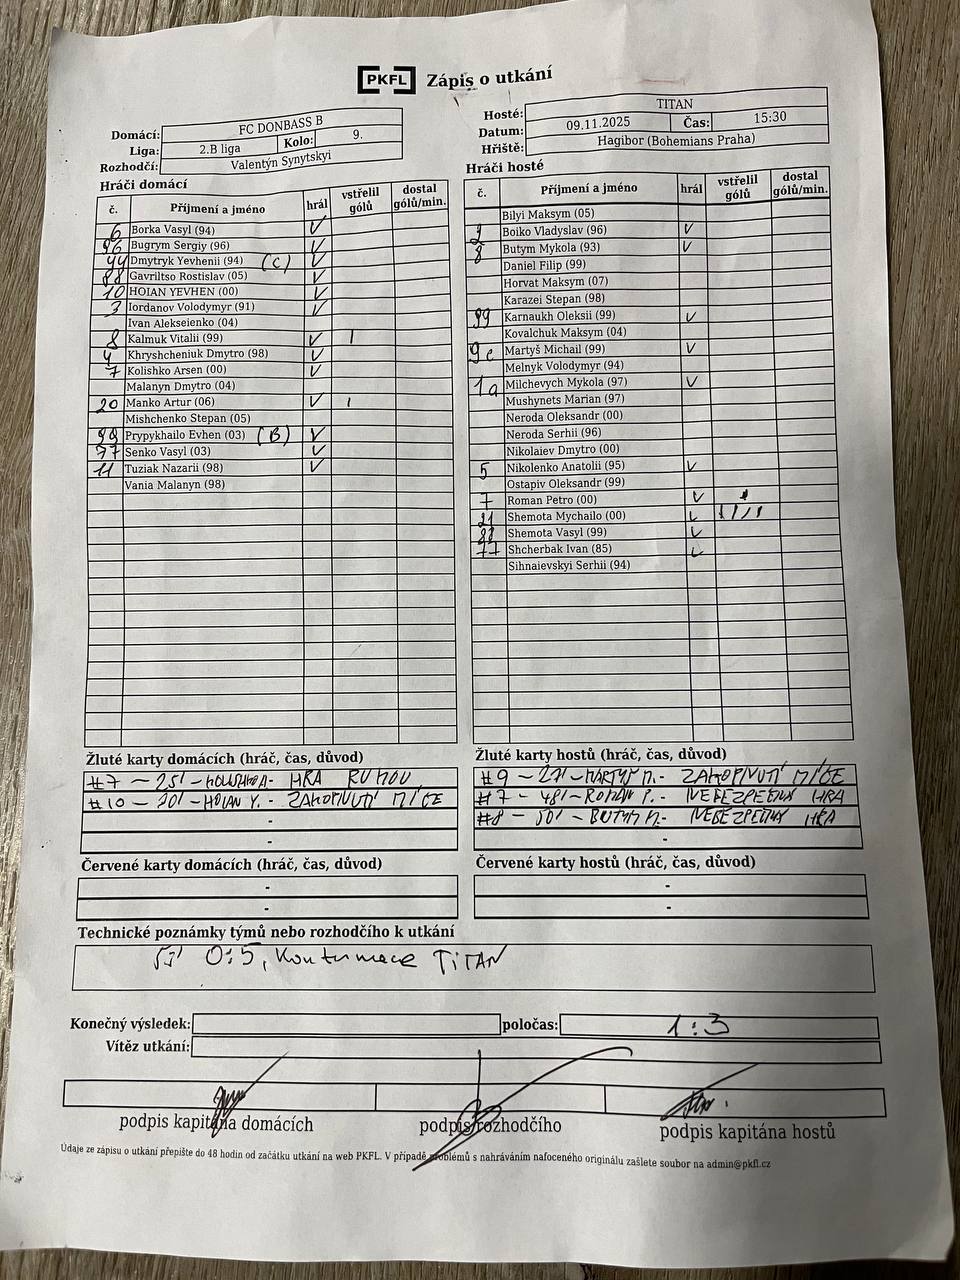 PKFL Zápis o utkání
Domácí: FC DONBASS B
Liga: 2.B liga Kolo: 9.
Rozhodčí: Valentýn Synytskyi
Hosté: TITAN
Datum: 09.11.2025 Čas: 15:30
Hřiště: Hagibor (Bohemians Praha)
Hráči domácí
č. Příjmení a jméno hrál vstřelil gólů dostal gólů/min.
6 Borka Vasyl (94) V
96 Bugrym Sergiy (96) V
44 Dmytryk Yevhenii (94) (C) V
88 Gavriltso Rostislav (05) V
10 HOIAN YEVHEN (00) V
3 Iordanov Volodymyr (91) V
Ivan Alekseienko (04)
8 Kalmuk Vitalii (99) V I
4 Khryshcheniuk Dmytro (98) V
7 Kolishko Arsen (00) V
Malanyn Dmytro (04)
20 Manko Artur (06) V I
Mishchenko Stepan (05)
99 Prypykhailo Evhen (03) (B) V
77 Senko Vasyl (03) V
11 Tuziak Nazarii (98) V
Vania Malanyn (98)
Hráči hosté
č. Příjmení a jméno hrál vstřelil gólů dostal gólů/min.
Bilyi Maksym (05)
2 Boiko Vladyslav (96) V
8 Butym Mykola (93) V
Daniel Filip (99)
Horvat Maksym (07)
Karazei Stepan (98)
99 Karnaukh Oleksii (99) V
Kovalchuk Maksym (04)
9c Martyš Michail (99) V
Melnyk Volodymyr (94)
1a Milchevych Mykola (97) V
Mushynets Marian (97)
Neroda Oleksandr (00)
Neroda Serhii (96)
Nikolaiev Dmytro (00)
5 Nikolenko Anatolii (95) V
Ostapiv Oleksandr (99)
7 Roman Petro (00) V I
21 Shemota Mychailo (00) V IIII
Shemota Vasyl (99) V
77 Shcherbak Ivan (85) V
Sihnaievskyi Serhii (94)
Žluté karty domácích (hráč, čas, důvod)
#7 – 25' – HRA RUKOU
#10 – 20' – HOIAN Y. – ZAKOPNUTÍ MÍČE
-
-
Žluté karty hostů (hráč, čas, důvod)
#9 – 27' – MARTYŠ M. – ZAKOPNUTÍ MÍČE
#7 – 48' – ROMAN P. – NEBEZPEČNÁ HRA
#8 – 50' – BUTYM M. – NEBEZPEČNÁ HRA
-
Červené karty domácích (hráč, čas, důvod)
-
-
Červené karty hostů (hráč, čas, důvod)
-
-
Technické poznámky týmů nebo rozhodčího k utkání
0:5, Kontumace TITAN
Konečný výsledek: poločas: 1:3
Vítěz utkání:
podpis kapitána domácích podpis rozhodčího podpis kapitána hostů
Údaje ze zápisu o utkání přepište do 48 hodin od začátku utkání na web PKFL. V případě problémů s nahráváním nafoceného originálu zašlete soubor na admin@pkfl.cz